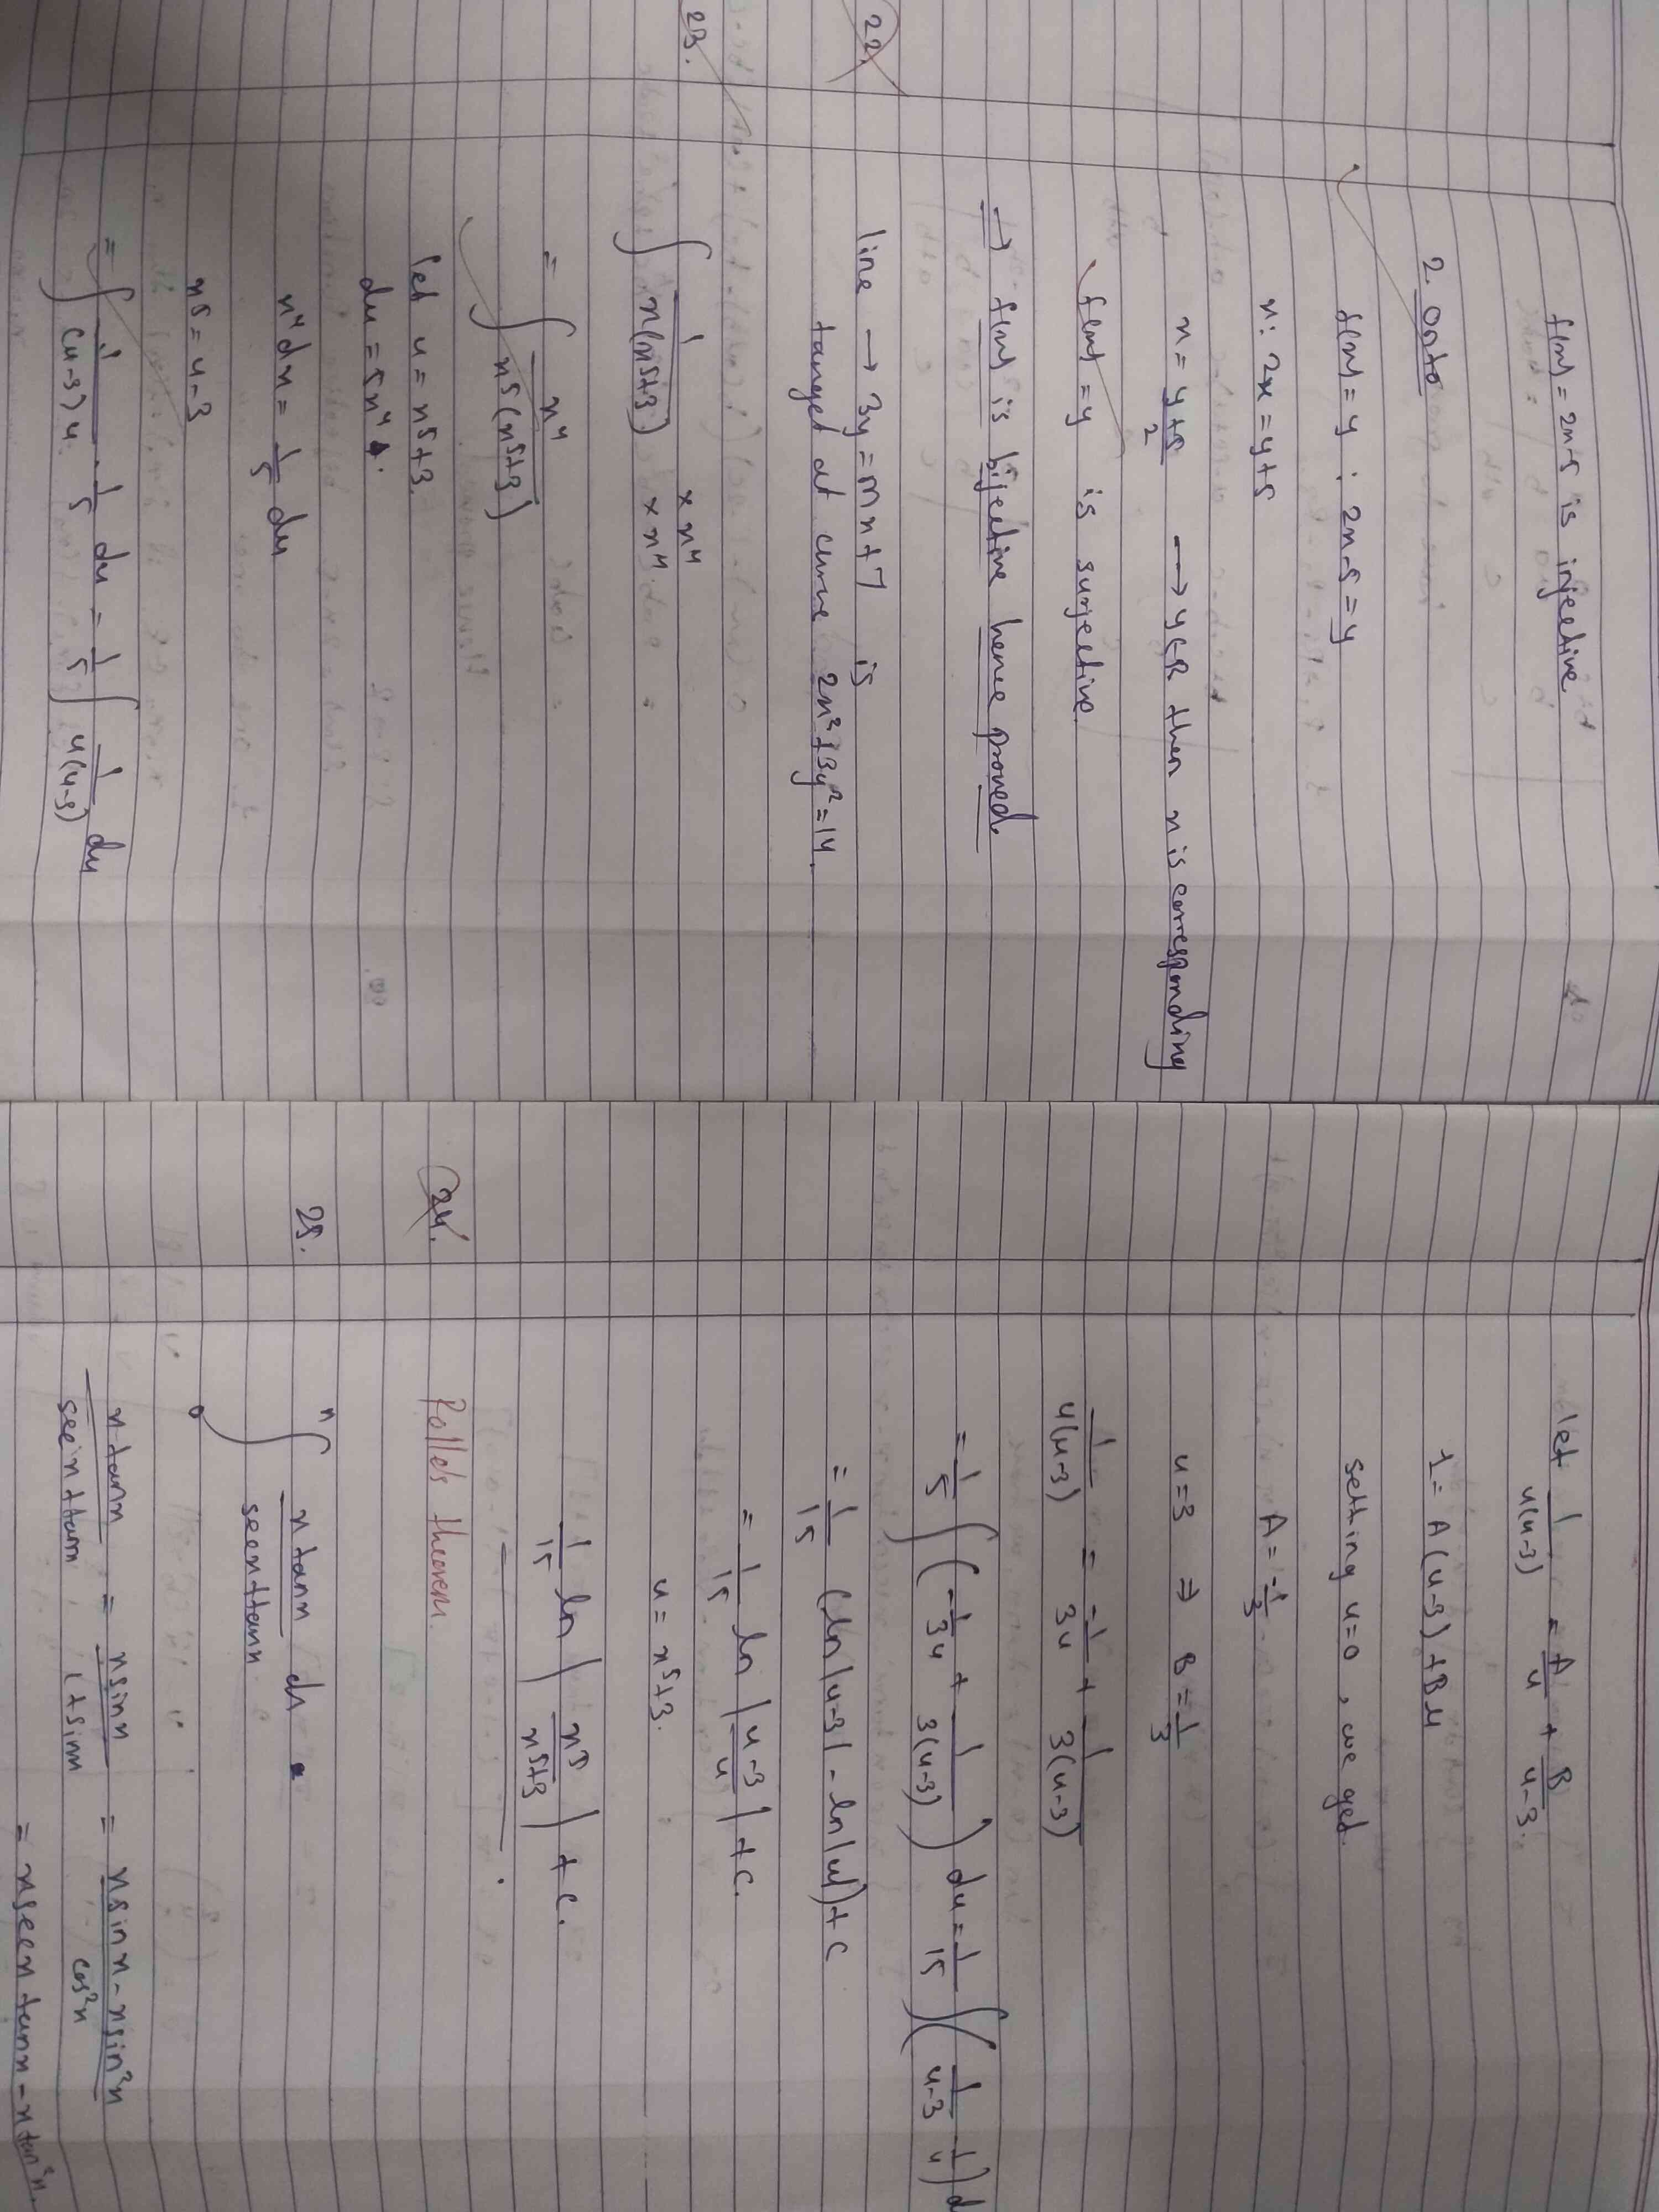 f(x) = 2x-5 is injective
2. onto
f(x) = y : 2x-5 = y
x: 2x = y+5
x = y+5/2 → y∈R then x is corresponding
f(x) = y is surjective.
→ f(x) is bijective hence proved.
22. line → 3y = mx+7 is
tanget at curve 2x²+3y²=14.
23. ∫ 1/x(x⁵+3) × x⁴/× x⁴
= ∫ x⁴/x⁵(x⁵+3)
let u = x⁵+3.
du = 5x⁴.
x⁴dx = 1/5 du
x⁵ = u-3
= ∫ 1/(u-3)u . 1/5 du = 1/5 ∫ 1/u(u-3) du
let 1/u(u-3) = A/u + B/u-3.
1 = A(u-3)+Bu
setting u=0, we get.
A = -1/3
u=3 ⇒ B = 1/3
1/u(u-3) = -1/3u + 1/3(u-3)
= 1/5 ∫ (-1/3u + 1/3(u-3)) du = 1/15 ∫ (1/u-3 - 1/u) d
= 1/15 (ln|u-3| - ln|u|) + c
= 1/15 ln |u-3/u| + c.
u = x⁵+3.
1/15 ln |x⁵/x⁵+3| + c.
24. Rolle's theorem.
25. ∫₀ⁿ x tanx/secx+tanx dx
x tanx/secx+tanx = x sinx/1+sinx = x sinx - x sin²x/cos²x
= x secx tanx - x tan²x.